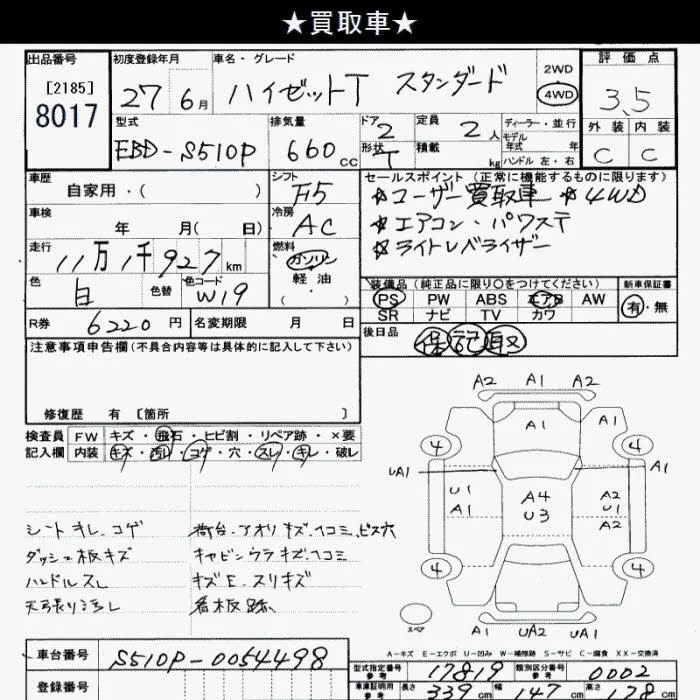 ★買取車★
出品番号 初度登録年月 車名・グレード 評価点
[2185] 8017
27年6月 ハイゼットT スタンダード 2WD 4WD 3.5
型式 排気量 ドア 定員 ディーラー・並行 外装 内装
EBD-S510P 660cc 2 2人 モデル年式 年 C C
形状 T 積載 kg ハンドル 左・右
車歴 シフト セールスポイント(正常に機能するものに限ります)
自家用・( ) F5 ☆ユーザー買取車 ☆4WD
車検 冷房 ☆エアコン・パワステ
年 月( 日) AC ☆ライトレベライザー
走行 燃料
11万1千927km ガソリン 軽油 ( )
色 色替 色コード 装備品(純正品に限り〇をつけてください) 新車保証書
白 W19 PS PW ABS エアB AW 有・無
SR ナビ TV カワ
R券 6220円 名変期限 月 日 後日品 保 記 取
注意事項申告欄(不具合内容等は具体的に記入して下さい)
修復歴 有 [箇所 ]
検査員 FW キズ・飛石・ヒビ割・リペア跡・×要
記入欄 内装 キズ・汚レ・コゲ・穴・スレ・キレ・破レ
シートキレ.コゲ 荷台.アオリキズ.ヘコミ.ビス穴
ダッシュ板キズ キャビンウラキズ.ヘコミ
ハンドルスレ キズE.スリキズ
天張り汚レ 看板跡.
A2 A1 A2
A1 A1
4 4
UA1 A1
U1 A1 A4 U3 A2 U1 A2
4 4
スペア A1 UA2 UA1
A-キズ E-エクボ U-凹み W-補修跡 S-サビ C-腐食 XX-交換済
車台番号 S510P-0054498 型式指定番号 参考 17819 類別区分番号 参考 0002
登録番号 車庫証明用 参考 長さ 339cm 幅 147cm 高さ 178cm